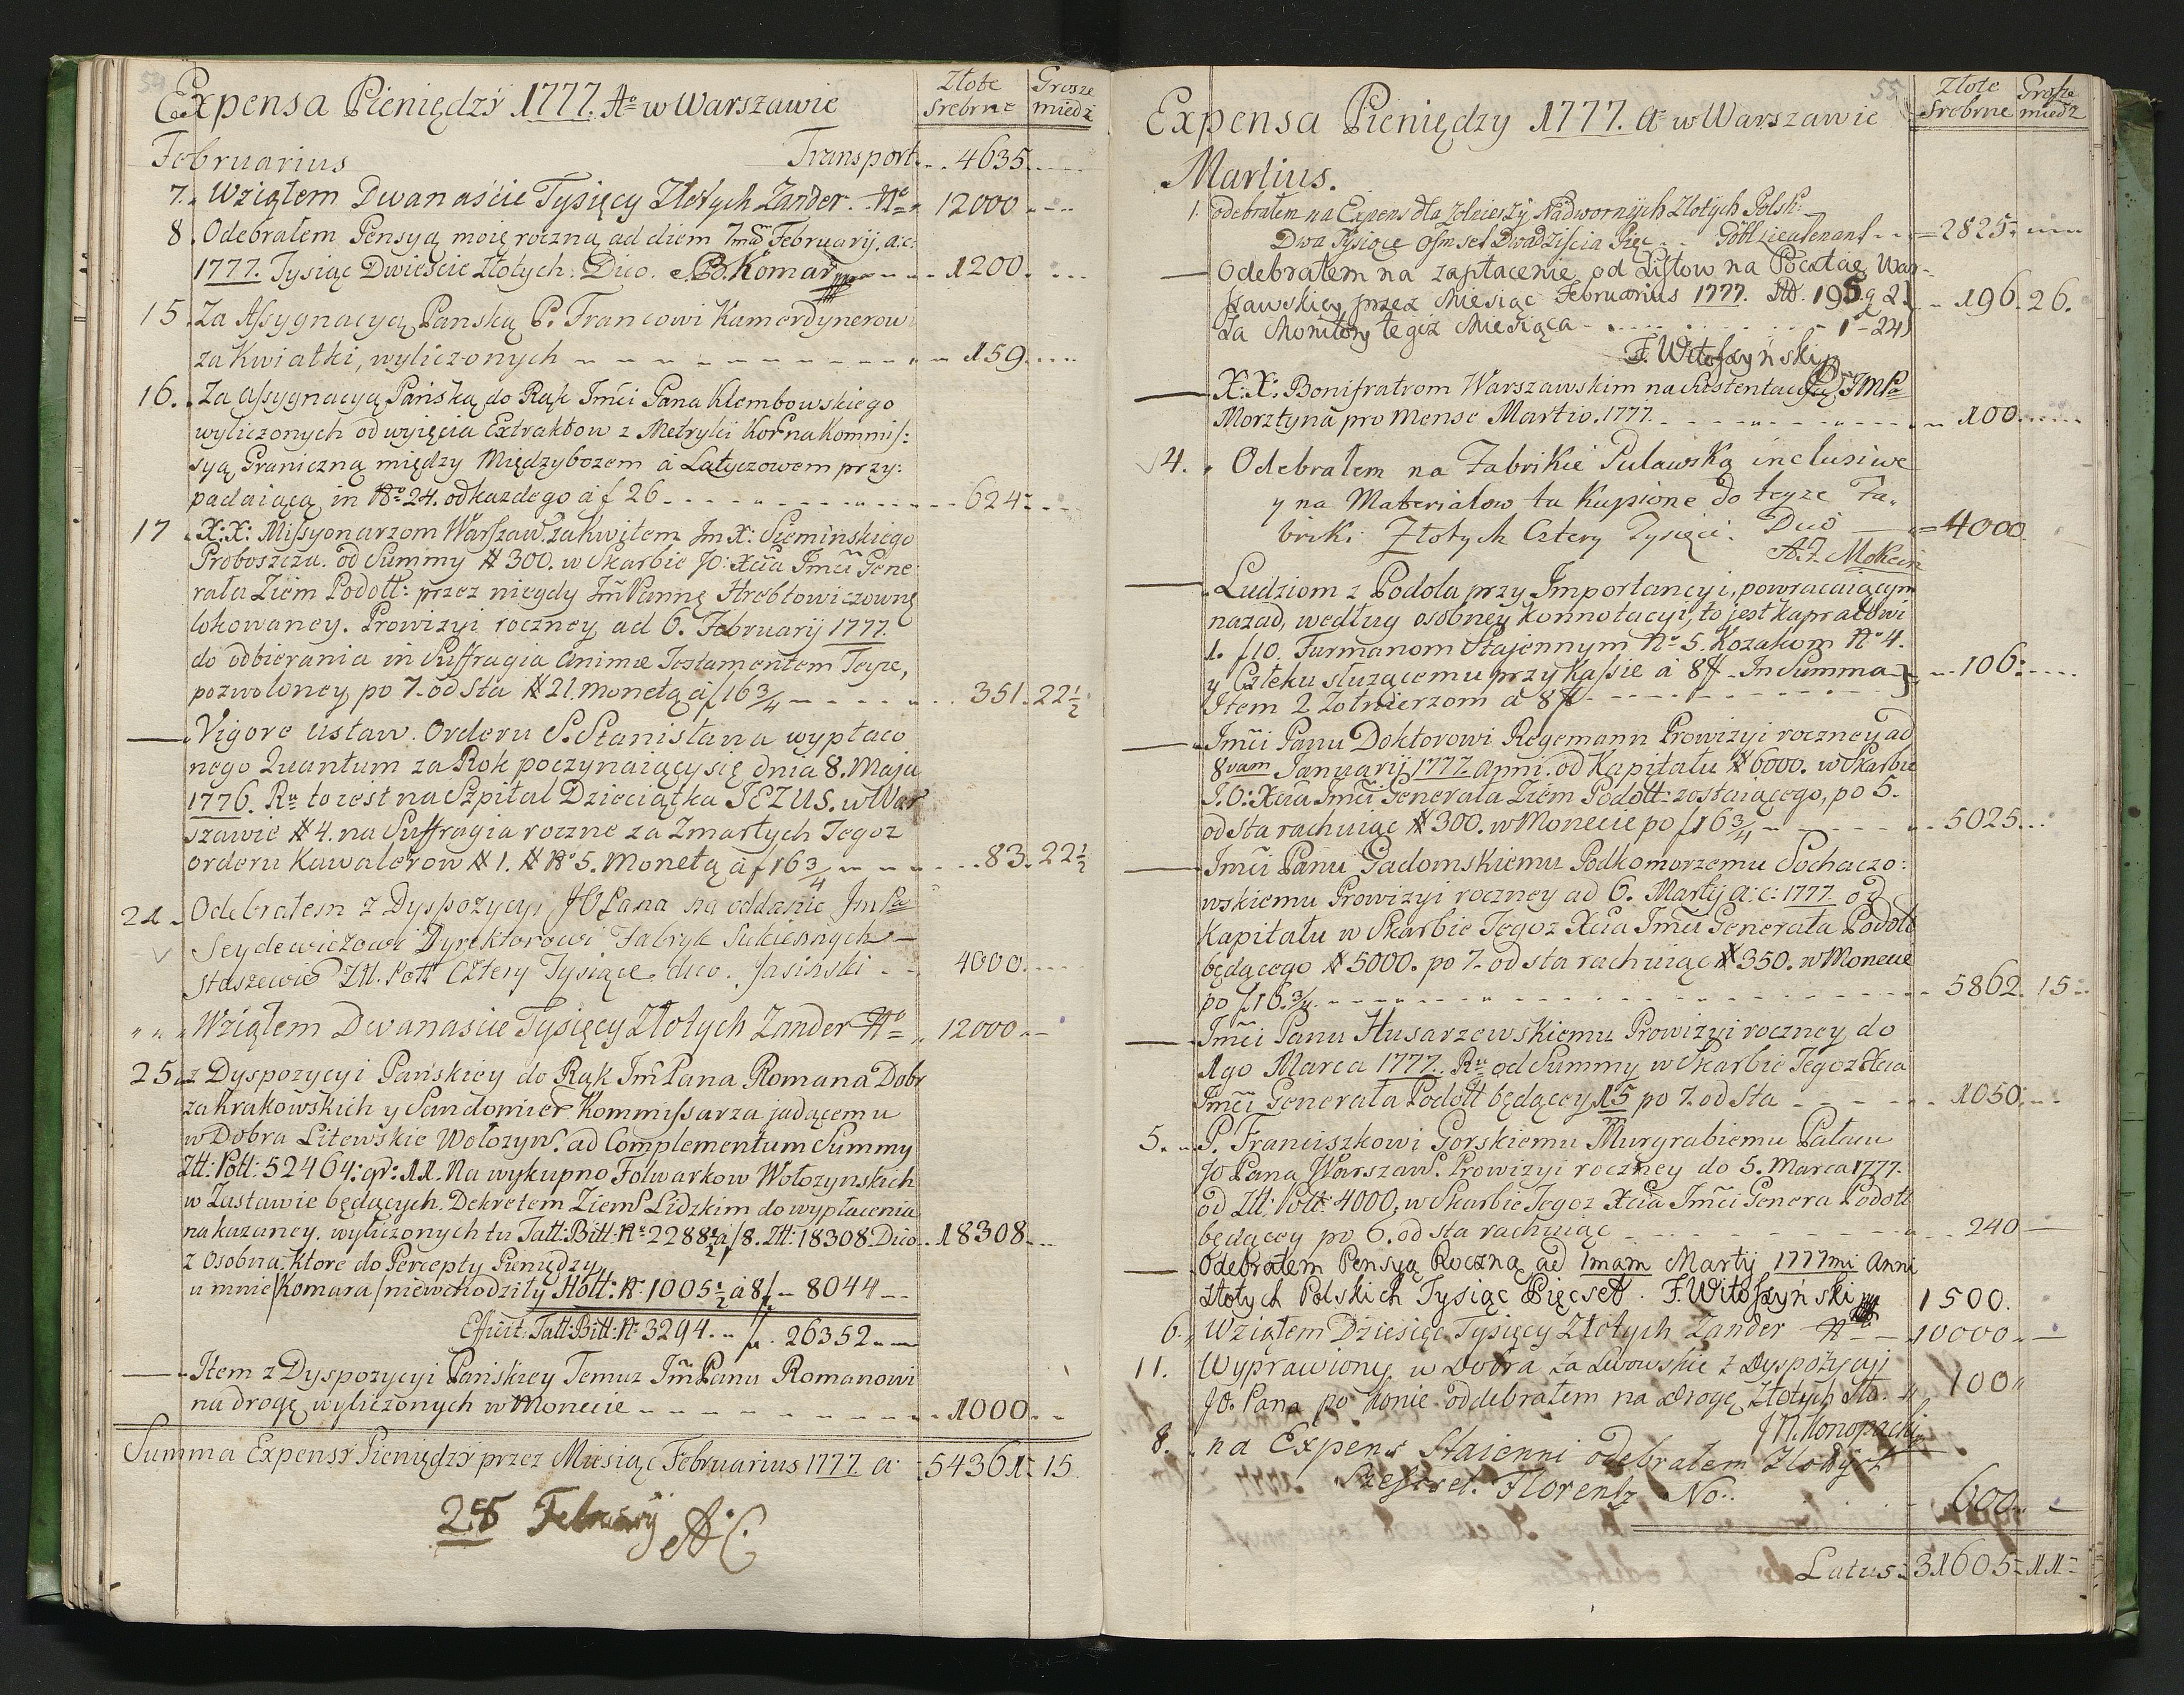 54
Expensa Pieniędzÿ 1777. Aº w Warszawie
Złote Srebrne
Grosze miedź
Februarius Transport 4635
7. Wziąłem Dwanaście Tysięcy Złotych Zander. 12000
8. Odebrałem Pensyą moię roczną ad diem 7mam Februarij. a: c:
1777. Tysiąc Dwieście Złotych. Dico. Komar 1200
15. Za Assygnacyą Panską P. Francowi Kamerdynerowi
za Kwiatki, wyliczonych 159
16. Za assygnacyą Pańską do Rąk Jmći Pana Klembowskiego
wyliczonych od wyięcia Extraktow z Metryki Kor na Kommis:
syą Graniczną między Międzybozem á Latyczowem przy:
padaiącą in Nº 24. od kazdego á f 26 624
17. X: X: Missyonarzom Warszaw. za kwitem Jm X: Sieminskiego
Proboszcza. od Summy # 300. w Skarbie Jº: Xcia Jmći Gene:
rała Ziem Podoll: przez niegdy Jm Pannę Hrebtowiczownę
lokowaney. Prowizyi roczney ad 6. Februarij 1777.
do odbierania in Suffragia animæ Testamentem Teyze,
pozwoloney po 7. od Sta # 21. monetą á f 16 3/4 351. 22 1/2
Vigore Ustaw. Orderu S. Stanisława wypłaco
nego Quantum za Rok poczynaiący się dnia 8. Maja
1776. Ru to iest na Szpital Dzieciątka JEZUS. w War
szawie # 4. na Suffragia roczne za Zmarłych Tegoz
orderu Kawalerow # 1. # Nº 5. Monetą á f 16 3/4 83. 22 1/2
21. Odebrałem z Dyspozycyi JO Pana na oddanie Jm Pa
Seydewiczowi Dyrektorowi Fabryk Sukiennych
Staszewie Ztt. Poll Cztery Tysiące. dico. Jasiński 4000.
" " " Wziąłem Dwanaście Tysięcy Złotych Zander Nº 12000
25. z Dyspozycyi Pańskiey do Rąk Jm Pana Romana Dobr
za Krakowskich y Sandomier Kommissarza jadącemu
w Dobra Litewskie Wołozyn. ad Complementum Summy
Ztt: Poll: 52464: gr: 11. Na wykupno Folwarkow Wołozynskich
w Zastawie będących. Dekretem Ziems Lidzkim do wypłacenia
nakazaney. wyliczonych tu Tall: Bitt: Nº 2288 1/2 á f 8. Ztt: 18308 Dico 18308
z osobna. Ktore do Percepty Pieniędzy
u mnie /Komara/ niewchodziły Holl: Nº 1005 1/2 á 8 f 8044
Efficit. Tall: Bitt: Nº 3294. f. 26352
Item z Dyspozycyi Pańskiey Temuz Jm Panu Romanowi
na drogę wyliczonych w Monecie 1000
Summa Expensÿ Pieniędzÿ przez Miesiąc Februarius 1777. a: 54361 15
Februarij A. C.
55
Expensa Pieniędzy 1777. a w Warszawie
Złote Srebrne
Grosze miedź
Martius.
1. odebrałem na Expens dla Zołnierzy Nadwornych Złotych Polsk:
Dwa Tysiące Osmset Dwadziścia Pięć Göbl Lieutenant 2825
Odebrałem na zapłacenie od Listow na Pocztaę War-
szawskiey przez Miesiąc Februarius 1777. Ztt. 195. g 2
Za Monitory tegiz Miesiąca 1 - 24 196. 26.
F. Witoszyński
X: X: Bonifratrom Warszawskim na Sustentacyą JmPa
Morztyna pro Mense Martio. 1777. 100
4. Odebrałem na Fabrikie Puławską inclusiwe
y na Materiałow tu kupione do teyze Fa-
briki. Złotych Cztery Tysięci. Dico 4000
Ludziom z Podola przy Importancyi, powracaiącym
nazad, według osobney konnotacyi, to jest kapralowi
1. f 10. Furmanom Stajennym Nº 5. Kozakom Nº 4.
y Człeku służącemu przy Kassie á 8 f. In Summa 106
Item 2 Zołnierzom á 8 f
Jmći Panu Doktorowi Regemann Prowizyi roczney ad
8vam Januarij 1777. Anni. od Kapitału # 6000. w Skarbie
J. O: Xcia Jmći Generała Ziem Podoll: zostaiącego, po 5.
od sta rachuiąc # 300. w Monecie po f 16 3/4 5025
Jmći Panu Gadomskiemu Podkomorzemu Sochaczo:
wskiemu Prowizyi roczney ad 6. Martij a: c: 1777. od
Kapitału w Skarbie Tegoz Xcia Jmći Generała Podoll
będącego # 5000. po 7. od sta rachuiąc # 350. w Monecie
po f 16. 3/4 5862. 15
Jmći Panu Husarzewskiemu Prowizyi roczney do
1go Marca 1777. Ru od Summy w Skarbie Tegoz Xcia
Jmći Generała Podoll będącey 15 po 7. od Sta 1050
5. P. Franciszkowi Gorskiemu Murgrabiemu Pałacu
Jº Pana Warszaw. Prowizyi roczney do 5. Marca 1777.
od Ztt: Poll: 4000, w Skarbie Tegoz Xcia Jmći Genera Podoll
będącey po 6. od sta rachuiąc 240
Odebrałem Pensyą Roczną ad 1mam Martij 1777mi Anni
złotych Polskich Tysiąc Pięcset. F. Witoszyński 1500.
6. Wziąłem Dziesięć Tysięcy Złotych Zander 10000
11. Wyprawiony w Dobra za Lwowskie z Dyspozycyi
Jº. Pana po konie oddebrałem na Drogę Złotych Sto. 100
J M. Konopacki
8. na Expens Staienni odebrałem Złotych
Szescset. Florentz No. 600
Latus 31605 11